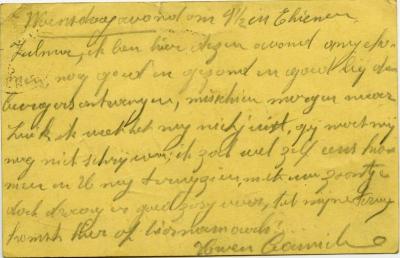 Woensdag avond om 9½ in Thienen
ik ben hier dezen avond aangeko-
men, nog goed en gezond en goed bij den
burger ontvangen, misschien morgen naar
Luik ik weet het nog niet juist, gij moet mij
nog niet schrijven, ik zal wel zelf eens
men en U nog terugzien, met uw zoontje
doch draag er goed zorg voor, tot mijne terug
komst hier of
Uwen Camiel